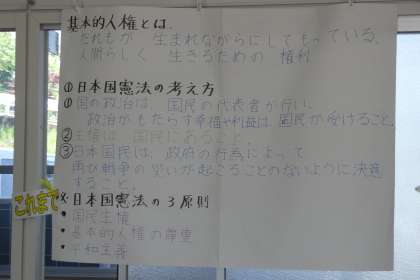 基本的人権とは、
だれもが 生まれながらにしてもっている、
人間らしく 生きるための 権利
①日本国憲法の考え方
①国の政治は、国民の代表者が行い、
政治がもたらす幸福や利益は国民が受けること。
②主権は、国民にあること。
③日本国民は、政府の行為によって
再び戦争の災いが起こることのないように決意
すること。
日本国憲法の3原則
・国民主権
・基本的人権の尊重
・平和主義
これまで